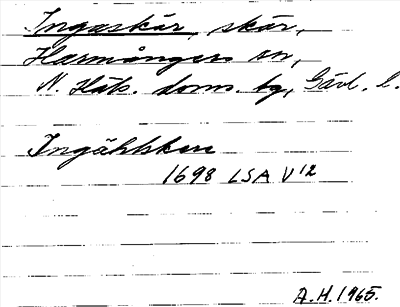 Ingaskär, skär,
Harmångers sn,
N. Häls. doms. tg, Gävl. l.
Ingåhlsken
1698 LSA V12
A.H. 1965.